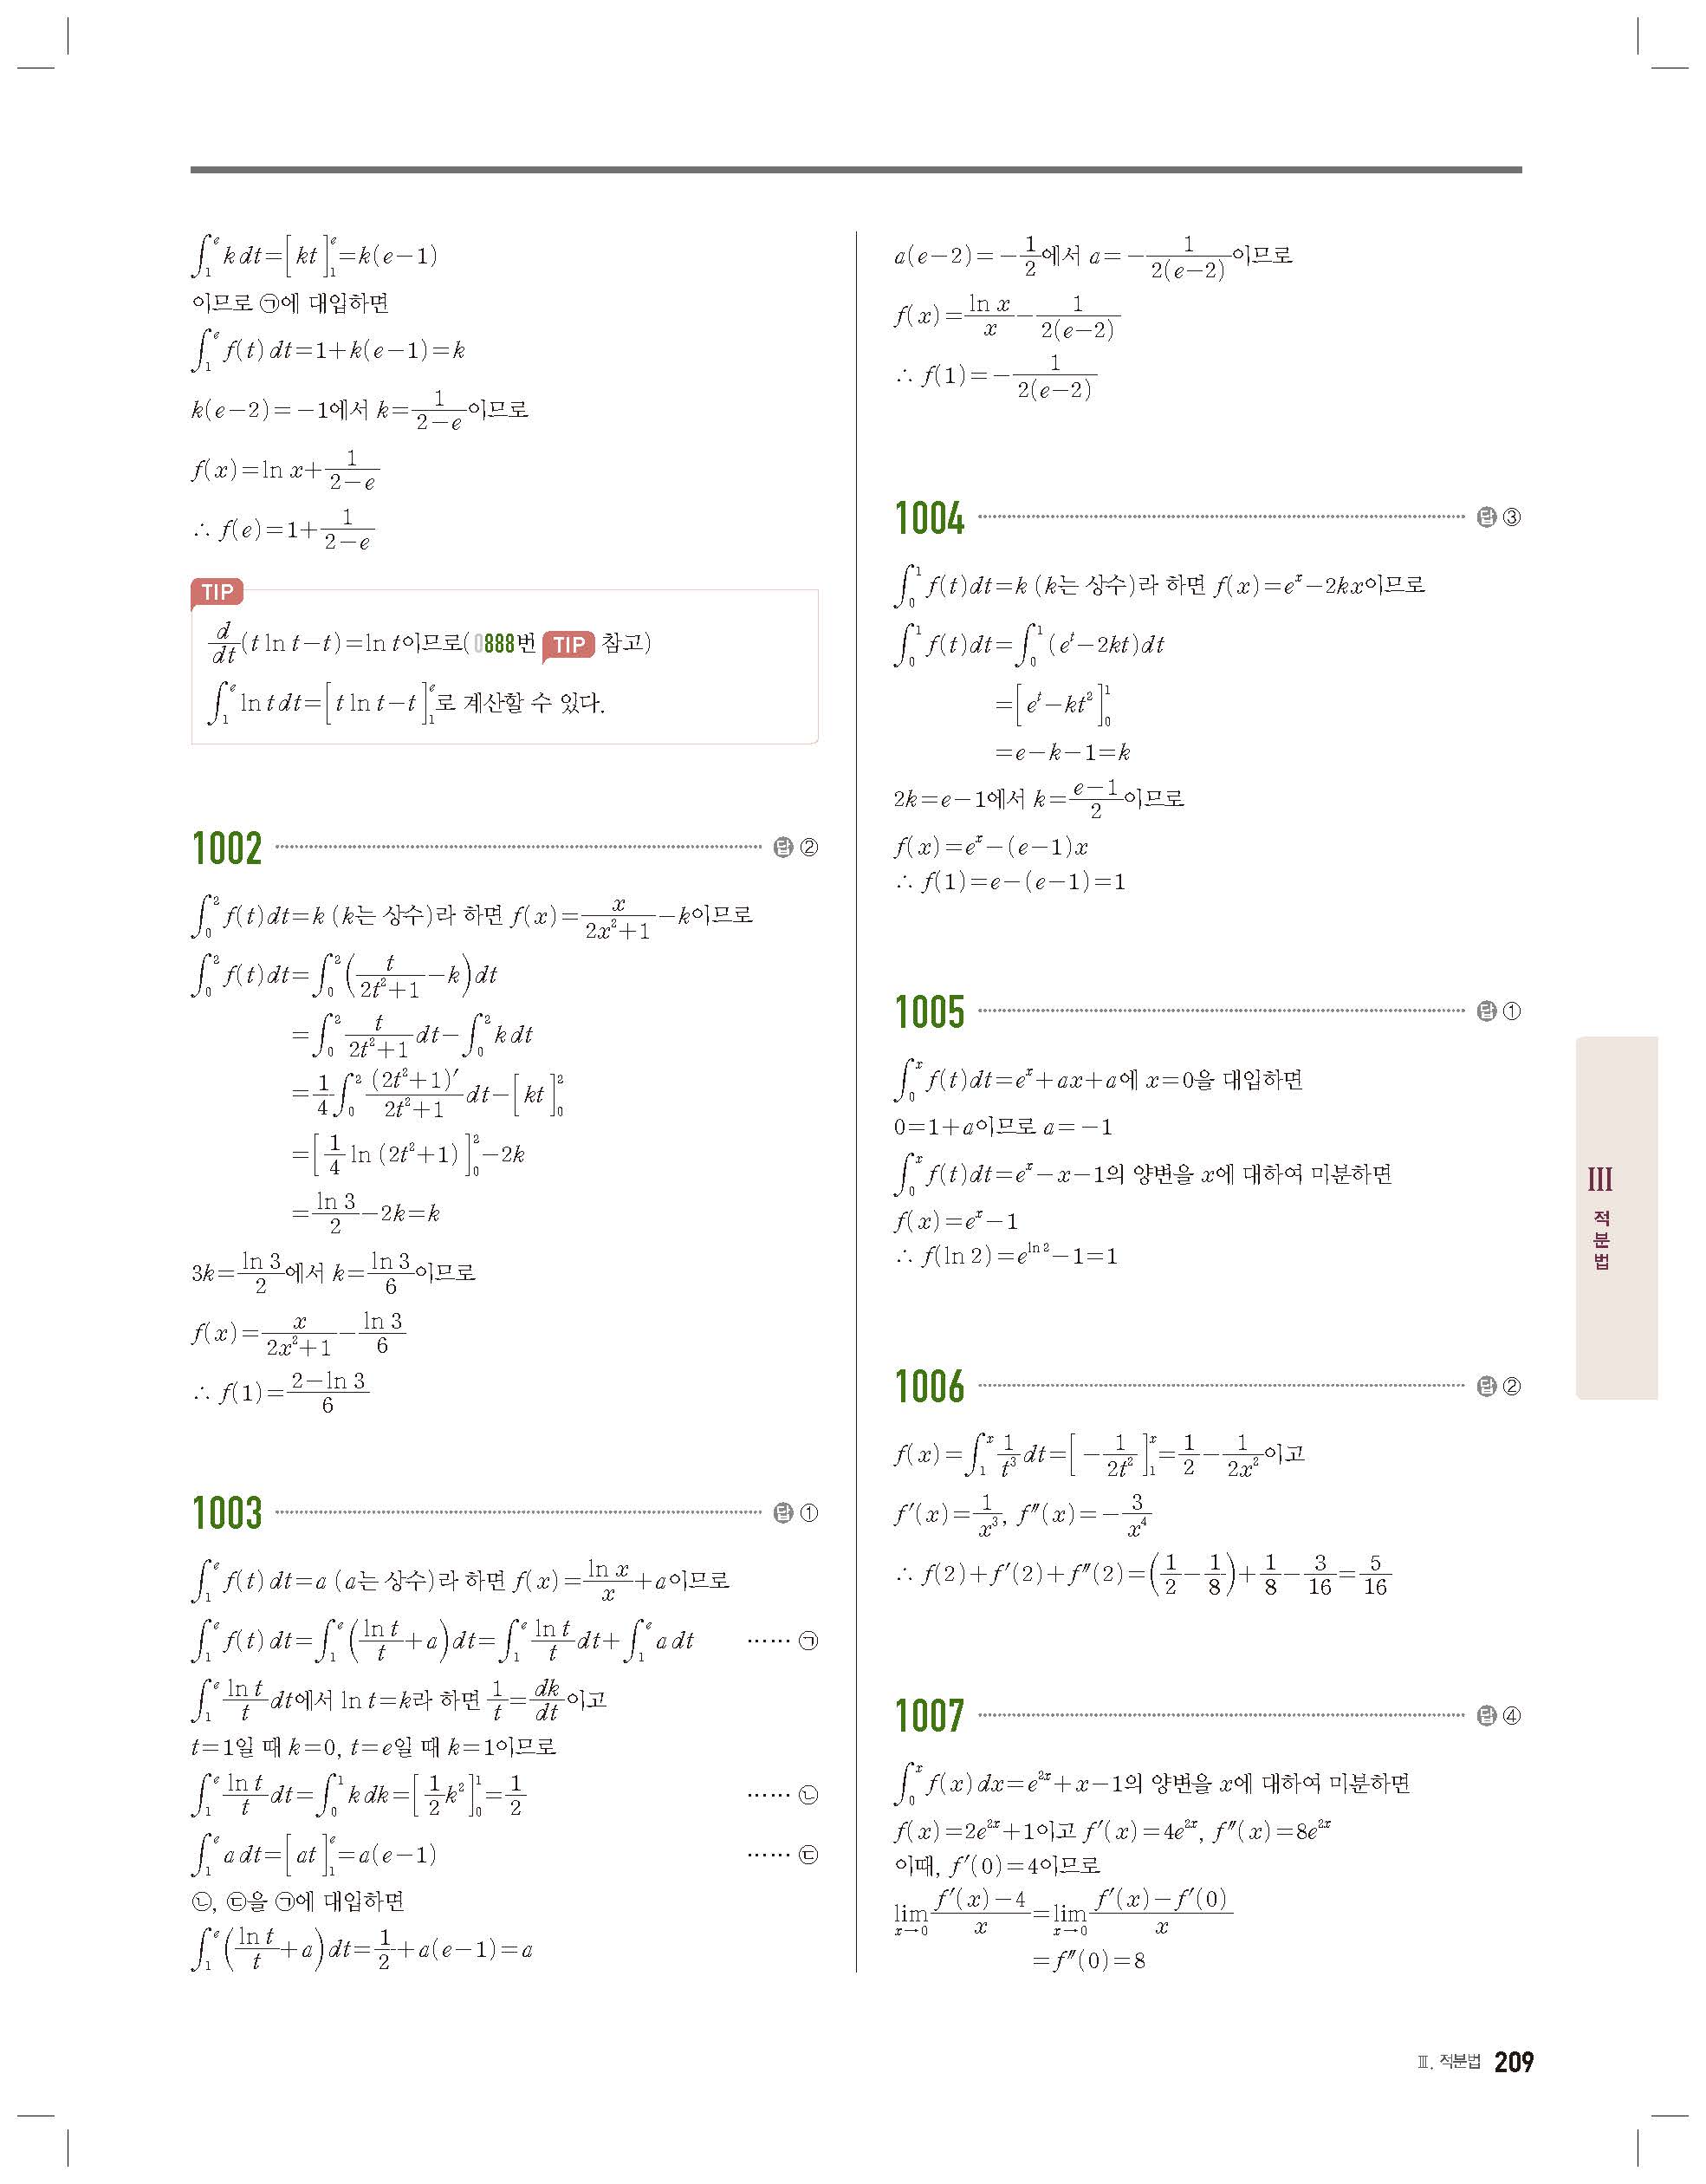 ∫₁ᵉ k dt=[kt]₁ᵉ=k(e−1)
이므로 ㉠에 대입하면
∫₁ᵉ f(t) dt=1+k(e−1)=k
k(e−2)=−1에서 k=1/(2−e)이므로
f(x)=ln x+1/(2−e)
∴ f(e)=1+1/(2−e)
TIP
d/dt(t ln t−t)=ln t이므로(0888번 TIP 참고)
∫₁ᵉ ln t dt=[t ln t−t]₁ᵉ로 계산할 수 있다.
1002 답 ②
∫₀² f(t)dt=k (k는 상수)라 하면 f(x)=x/(2x²+1)−k이므로
∫₀² f(t)dt=∫₀²(t/(2t²+1)−k)dt
=∫₀² t/(2t²+1) dt−∫₀² k dt
=1/4∫₀² (2t²+1)′/(2t²+1) dt−[kt]₀²
=[1/4 ln (2t²+1)]₀²−2k
=ln 3/2−2k=k
3k=ln 3/2에서 k=ln 3/6이므로
f(x)=x/(2x²+1)−ln 3/6
∴ f(1)=(2−ln 3)/6
1003 답 ①
∫₁ᵉ f(t) dt=a (a는 상수)라 하면 f(x)=ln x/x+a이므로
∫₁ᵉ f(t) dt=∫₁ᵉ(ln t/t+a)dt=∫₁ᵉ ln t/t dt+∫₁ᵉ a dt ⋯⋯ ㉠
∫₁ᵉ ln t/t dt에서 ln t=k라 하면 1/t=dk/dt이고
t=1일 때 k=0, t=e일 때 k=1이므로
∫₁ᵉ ln t/t dt=∫₀¹ k dk=[1/2 k²]₀¹=1/2 ⋯⋯ ㉡
∫₁ᵉ a dt=[at]₁ᵉ=a(e−1) ⋯⋯ ㉢
㉡, ㉢을 ㉠에 대입하면
∫₁ᵉ(ln t/t+a)dt=1/2+a(e−1)=a
a(e−2)=−1/2에서 a=−1/(2(e−2))이므로
f(x)=ln x/x−1/(2(e−2))
∴ f(1)=−1/(2(e−2))
1004 답 ③
∫₀¹ f(t)dt=k (k는 상수)라 하면 f(x)=eˣ−2kx이므로
∫₀¹ f(t)dt=∫₀¹ (eᵗ−2kt)dt
=[eᵗ−kt²]₀¹
=e−k−1=k
2k=e−1에서 k=(e−1)/2이므로
f(x)=eˣ−(e−1)x
∴ f(1)=e−(e−1)=1
1005 답 ①
∫₀ˣ f(t)dt=eˣ+ax+a에 x=0을 대입하면
0=1+a이므로 a=−1
∫₀ˣ f(t)dt=eˣ−x−1의 양변을 x에 대하여 미분하면
f(x)=eˣ−1
∴ f(ln 2)=e^(ln 2)−1=1
1006 답 ②
f(x)=∫₁ˣ 1/t³ dt=[−1/(2t²)]₁ˣ=1/2−1/(2x²)이고
f′(x)=1/x³, f″(x)=−3/x⁴
∴ f(2)+f′(2)+f″(2)=(1/2−1/8)+1/8−3/16=5/16
1007 답 ④
∫₀ˣ f(x) dx=e²ˣ+x−1의 양변을 x에 대하여 미분하면
f(x)=2e²ˣ+1이고 f′(x)=4e²ˣ, f″(x)=8e²ˣ
이때, f′(0)=4이므로
lim(x→0) (f′(x)−4)/x=lim(x→0) (f′(x)−f′(0))/x
=f″(0)=8
Ⅲ
적
분
법
Ⅲ. 적분법 209